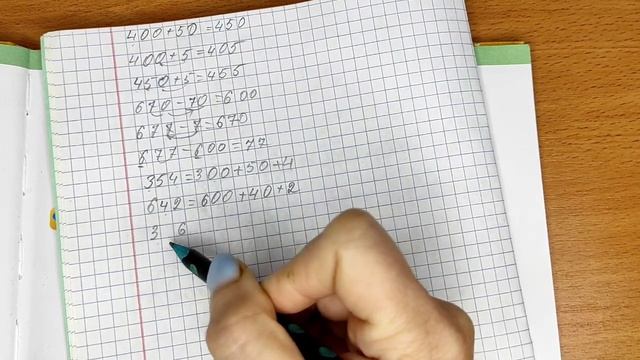 400+50=450
400+5=405
450+5=455
670-70=600
677-7=670
677-600=77
354=300+50+4
642=600+40+2
3 6